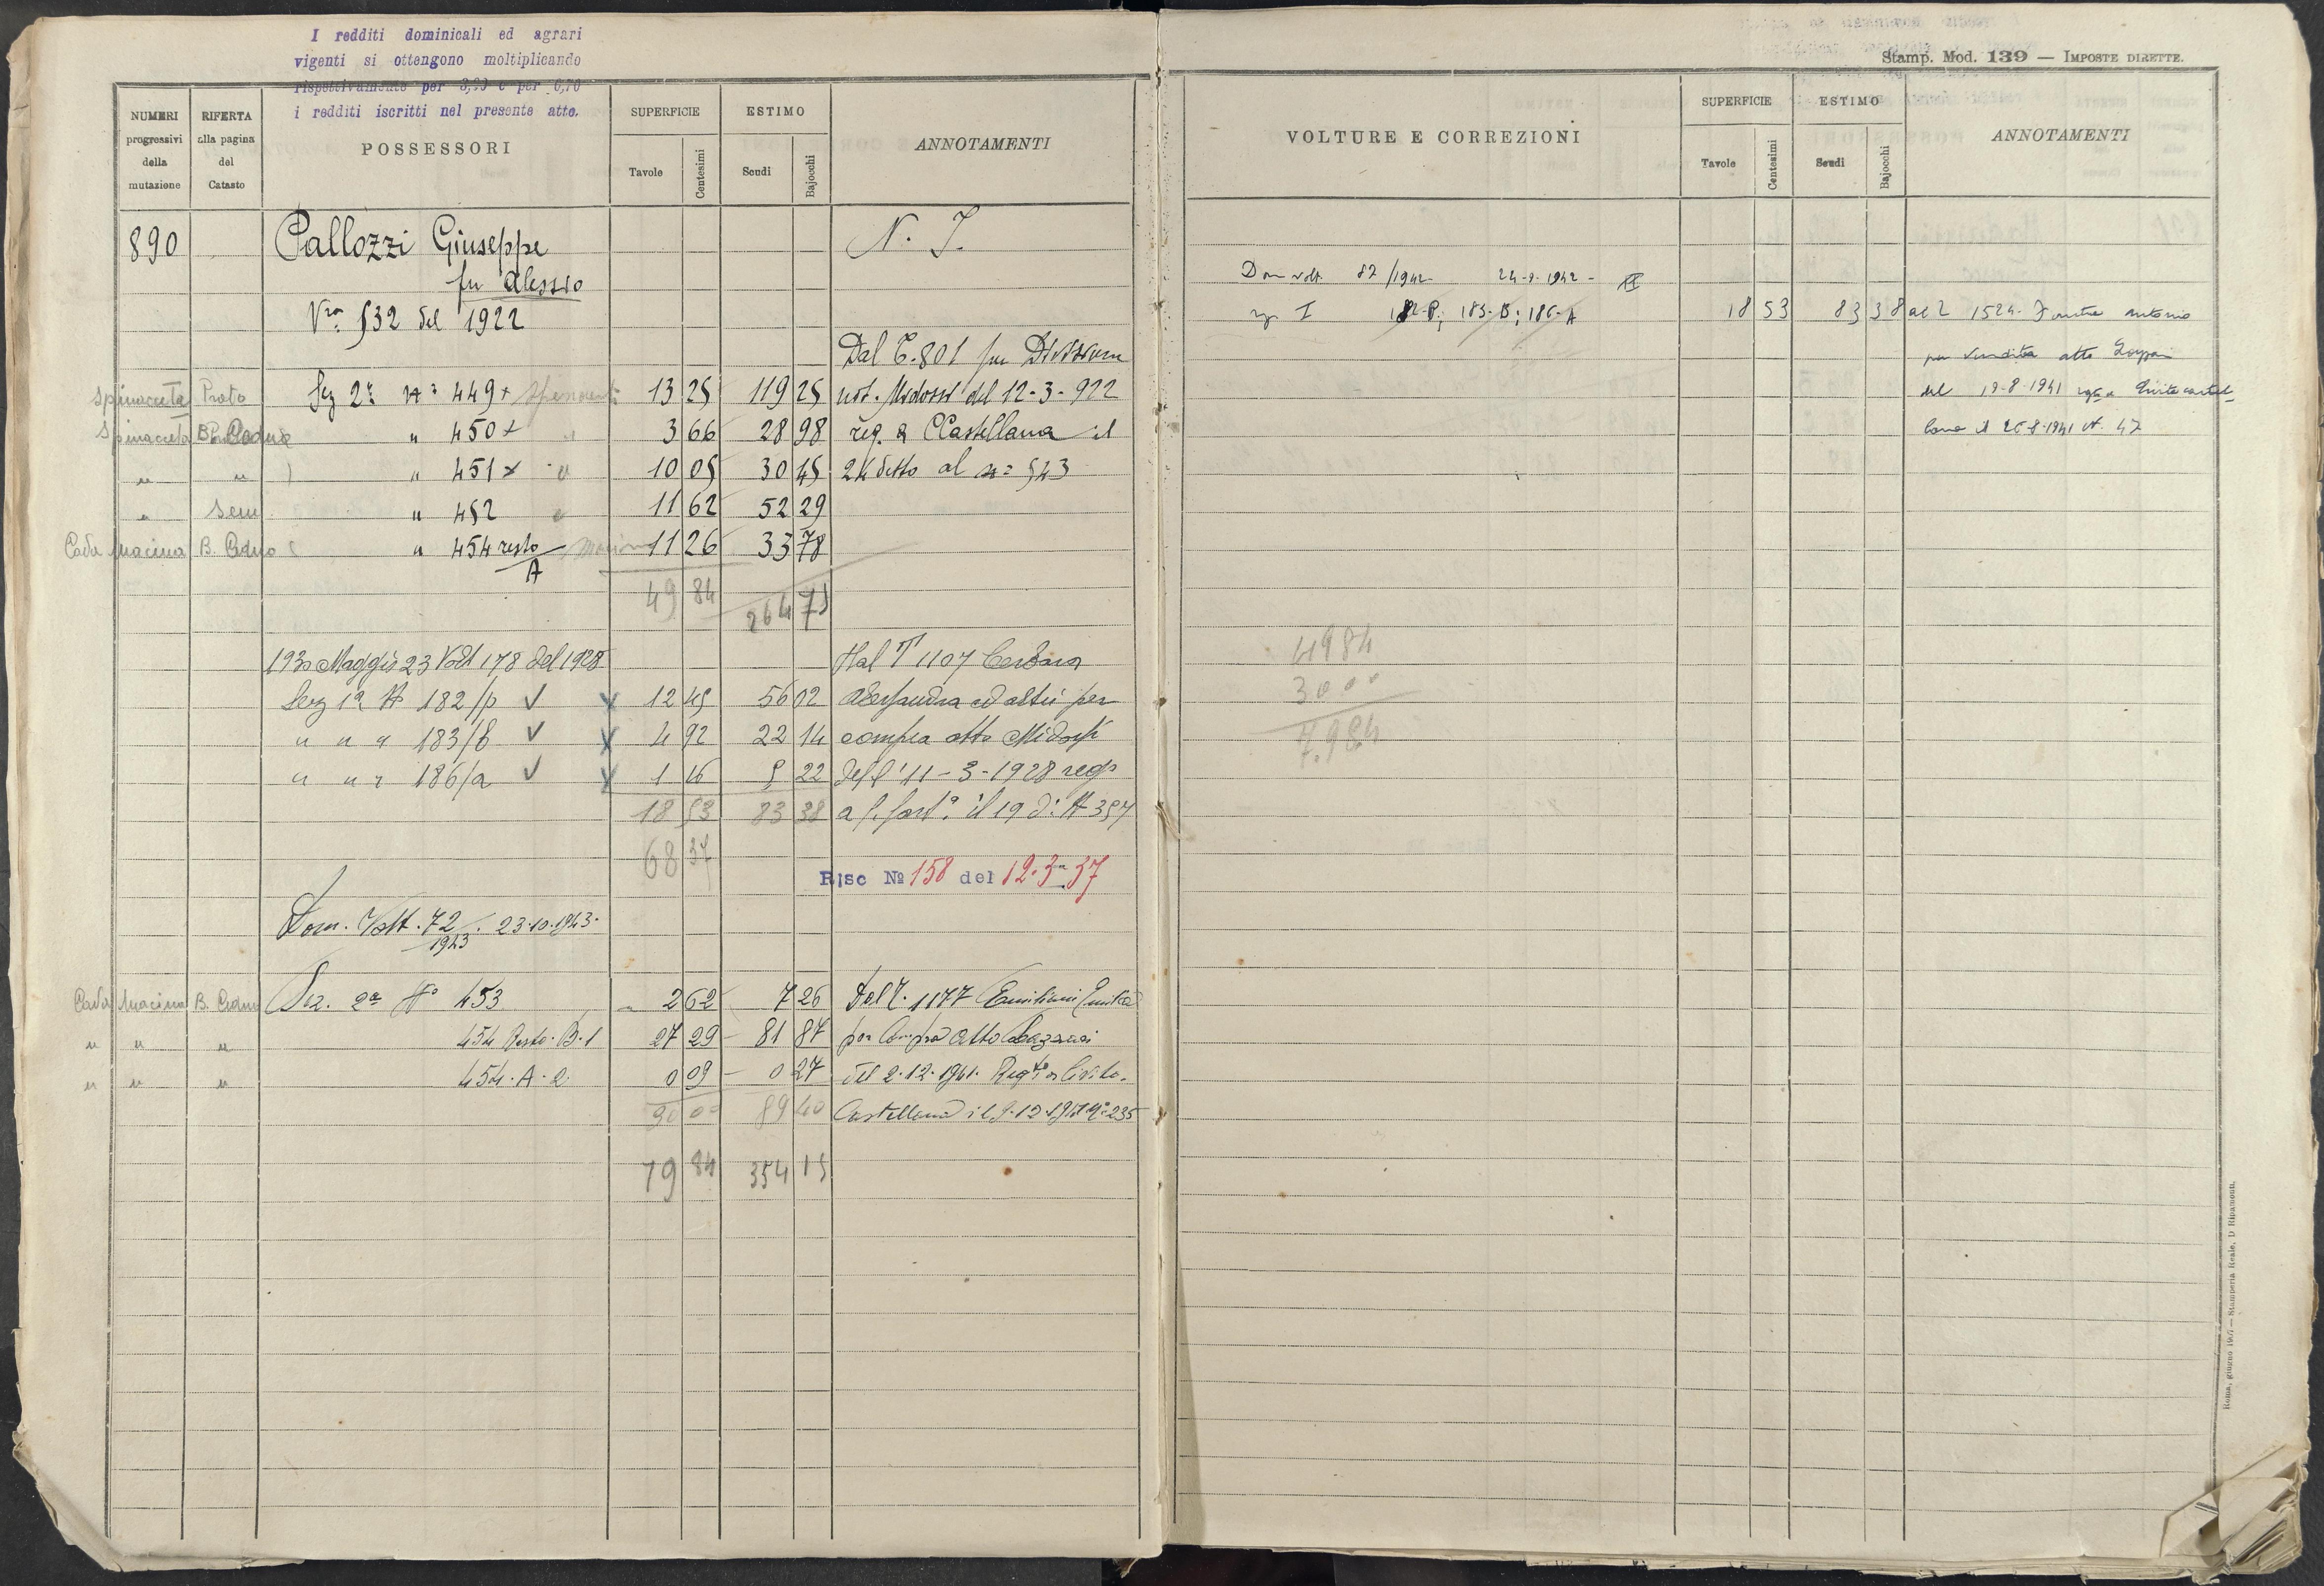 I redditi dominicali ed agrari
vigenti si ottengono moltiplicando
rispettivamente per 3,90 e per 6,70
i redditi iscritti nel presente atto.
NUMERI progressivi della mutazione
RIFERTA alla pagina del Catasto
POSSESSORI
SUPERFICIE
Tavole Centesimi
ESTIMO
Scudi Bajocchi
ANNOTAMENTI
890 Pallozzi Giuseppe N. I.
fu Alessio
Vra 532 del 1922
Dal T. 801 per Divisione
Spinacceta Prato Sez 2ª N° 449 x 13 25 119 25 not. Midossi del 12-3-922
Spinacceta B. Ceduo " 450 x " 3 66 28 98 reg. a CCastellana il
" " " 451 x " 10 05 30 45 24 detto al n= 543
" Sem " 452 " 11 62 52 29
Cava Macina B. Ceduo " 454 resto/A Macina 11 26 33 78
49 84 264 75
1930 Maggio 23 Volt 178 del 1928 Dal T 1107
Sez 1ª N 182/p ✓ x 12 45 56 02 Alessandra ed altri per
" " " 183/b ✓ x 4 92 22 14 compra atto Midossi
" " " 186/a ✓ x 1 16 5 22 dell'11-3-1928 reg
18 53 83 38 a C. Cast.ª il 19 d: N 357
68 37
Risc Nº 158 del 12.3.37
Dom. Volt. 72/1943. 23.10.1943.
Cava Macina B. Ceduo Sez. 2ª Nº 453 2 62 7 26 Dal T. 1177 Emiliani
" " " 454 Resto. B. 1 27 29 81 87 per Compra Atto
" " " 454. A. 2. 0 09 0 27 del 2.12.1941. Regto a Civita.
30 00 89 40 Castellana il 9.12.1941 Nº 235
79 84 354 15
Stamp. Mod. 139 — IMPOSTE DIRETTE.
VOLTURE E CORREZIONI
SUPERFICIE
Tavole Centesimi
ESTIMO
Scudi Bajocchi
ANNOTAMENTI
Dom volt. 82/1942 24-9-1942-
I 182-P; 183-B; 186-A 18 53 83 38 al 2 1524. Antonio
per vendita atto
del 19-8-1941 Civita Castel
lana il 26-8-1941 N. 47
4984
3000
7.984
Roma, giugno — Stamperia Reale, D Ripamonti.